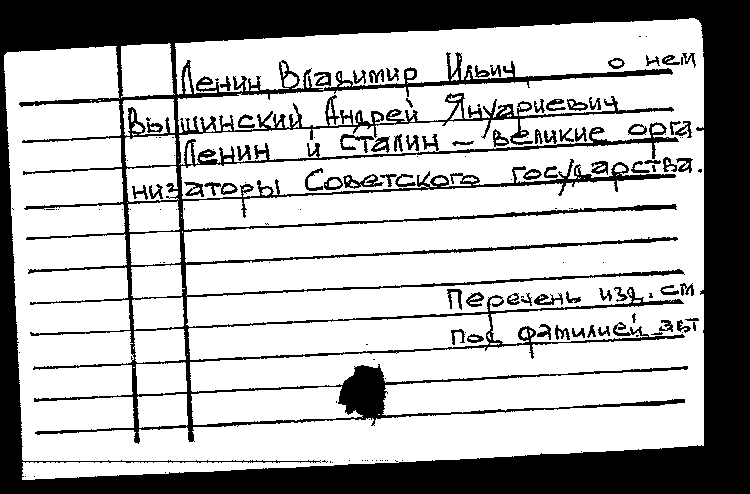 Ленин, Владимир Ильич о нем
Вышинский, Андрей Януариевич
Ленин и Сталин – великие орга-
низаторы Советского государства.
Перечень изд. см.
под фамилией авт.